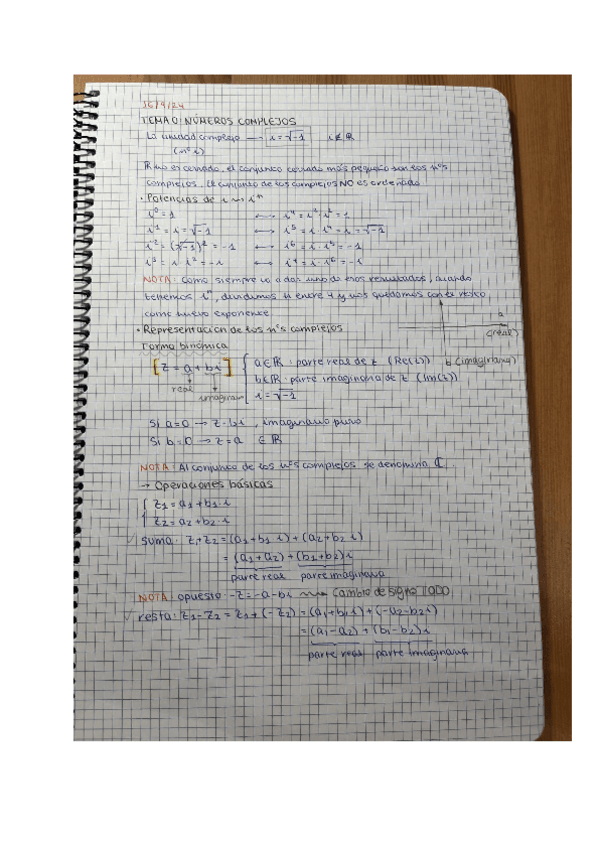 16/9/24
TEMA 0: NÚMEROS COMPLEJOS
La unidad compleja → i = √-1 i ∉ ℝ
(nº i)
ℝ no es cerrado, el conjunto cerrado más pequeño son los nºs
complejos. El conjunto de los complejos NO es ordenado
· Potencias de i → iⁿ
i⁰ = 1 ↔ i⁴ = i² · i² = 1
i¹ = i = √-1 ↔ i⁵ = i · i⁴ = i = √-1
i² = (√-1)² = -1 ↔ i⁶ = i · i⁵ = -1
i³ = i · i² = -i ↔ i⁷ = i · i⁶ = -i
NOTA: Como siempre va a dar uno de esos resultados, cuando
tenemos iⁿ, dividimos n entre 4 y nos quedamos con el resto
como nuevo exponente
· Representación de los nºs complejos
a
(real)
b (imaginaria)
Forma binómica
[z = a + bi] { a ∈ ℝ : parte real de z (Re(z))
b ∈ ℝ : parte imaginaria de z (Im(z))
real imaginari i = √-1
Si a = 0 → z = bi, imaginario puro
Si b = 0 → z = a ∈ ℝ
NOTA: Al conjunto de los nºs complejos se denomina ℂ
→ Operaciones básicas
{ z₁ = a₁ + b₁ · i
z₂ = a₂ + b₂ · i
✓ suma: z₁ + z₂ = (a₁ + b₁ i) + (a₂ + b₂ i)
= (a₁ + a₂) + (b₁ + b₂) i
parte real parte imaginaria
NOTA: opuesto: -z = -a - bi → Cambio de signo TODO
✓ resta: z₁ - z₂ = z₁ + (-z₂) = (a₁ + b₁ i) + (-a₂ - b₂ i)
= (a₁ - a₂) + (b₁ - b₂) i
parte real parte imaginaria